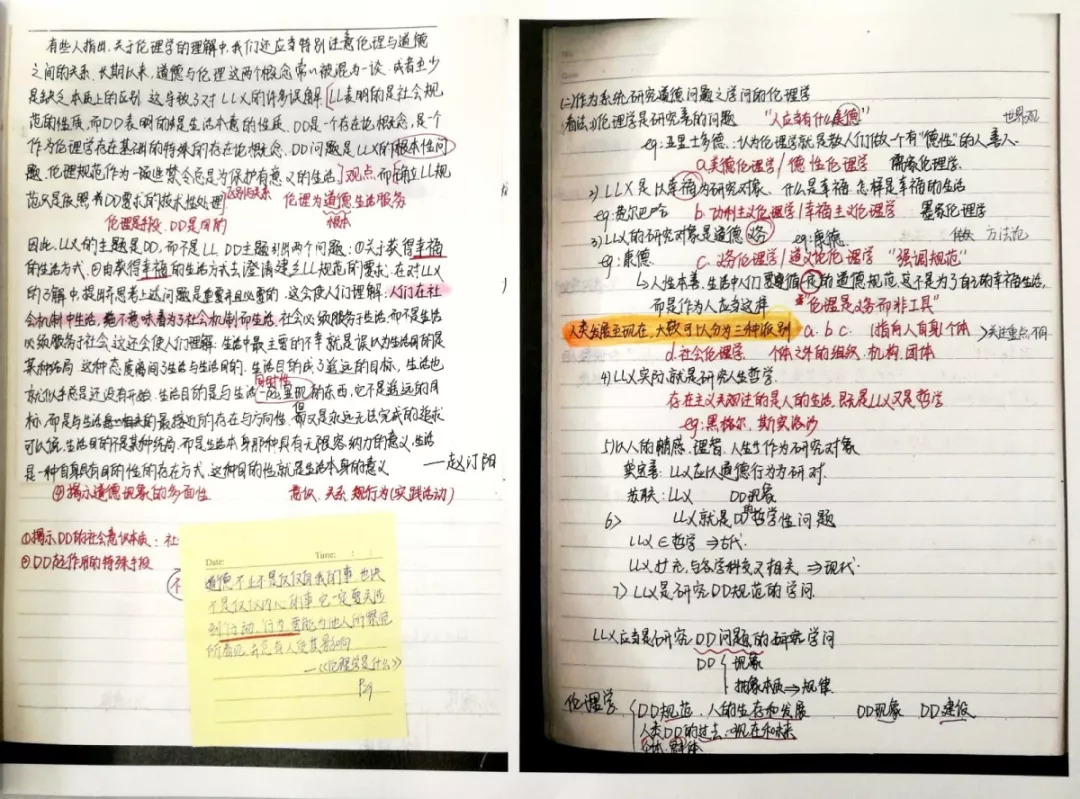 有些人指出,关于伦理学的理解中,我们还应当特别注意伦理与道德
之间的关系.长期以来,道德与伦理这两个概念常以被混为一谈.或者至少
是缺乏本质上的区别.这导致了对LLX的许多误解.LL表明的是社会规
范的性质,而DD表明的是生活本意的性质.DD是一个存在论概念,是一个
作为伦理学存在基础的特殊的存在论概念.DD问题是LLX的根本性问
题.伦理规范作为一种总是为保护有意义的生活]观点.而确立LL规
范只是按照DD要求的技术性处理 区别与关系 伦理为道德生活服务
伦理是手段.DD是目的 根本
因此.LLX的主题是DD,而不是LL.DD主题引出两个问题:①关于获得幸福
的生活方式.②由获得幸福的生活方式去澄清建立LL规范的要求.在对LLX
的了解中,提出并思考上述问题是重要并且必要的.这会使人们理解:人们在社
会机制中生活,绝不意味着为了社会机制而生活.社会必须服务于生活,而不是生活
必须服务于社会.这还会使人们理解:生活中最主要的不幸就是误以为生活目的是
某种结局.这种态度离间了生活与生活目的.生活目的成了遥远的目标,生活也
就似乎总是还没有开始.生活目的是与生活一起显现的东西,它不是遥远的目
标,而是与生活最接近的存在与方向性,但又是永远无法完成的追求
可以说,生活目的不是某种结局,而是生活本身那种具有无限容纳力的意义.生活
是一种自身具有目的性的存在方式.这种目的性就是生活本身的意义 ——赵汀阳
②揭示道德现象的多面性 意识.关系.行为(实践活动)
①揭示DD的社会意识本质:社
②DD起作用的特殊手段
Date: Time: : :
道德不是仅仅自我的事.也决
不是仅仅内心的事.它一定要关涉
到行动.行为.要能为他人的
所看见.并总有人受其影响
——《伦理学是什么》
P4
(二)作为系统研究道德问题之学问的伦理学
看法:1)伦理学是研究善的问题 "人应当有什么美德" 世界观
eg:亚里士多德:认为伦理学就是教人们做一个有"德性"的人.善人.
a.美德伦理学/德性伦理学 儒家伦理学.
2)LLX是以幸福为研究对象.什么是幸福.怎样是幸福的生活
eg:费尔巴哈 b.功利主义伦理学/幸福主义伦理学 墨家伦理学
3)LLX的研究对象是道德义务 eg:康德. 做 方法论
eg:康德 c.义务论伦理学/道义论伦理学 "强调规范"
↳人性本善.生活中人们要遵循一定的道德规范.这不是为了自己的幸福生活,
而是作为人应当这样 "伦理是义务而非工具"
人类发展至现在,大致可以分为三种派别 a.b.c.(指向人自身)个体 >关注重点不同
d.社会伦理学 个体之外的组织.机构.团体
4)LLX实际就是研究人生哲学.
存在主义关注的是人的生活.既是LLX又是哲学
eg:黑格尔.斯宾诺沙
5)以人的情感.理智.人生了作为研究对象
樊宝善:LLX应以道德行为为研对.
苏联:LLX DD现象
6> LLX就是DD的哲学性问题
LLX∈哲学 ⇒古代.
LLX扩充,与各学科交叉相关 ⇒现代.
7)LLX是研究DD规范的学问.
LLX应当是研究DD问题的研究学问
DD{现象
抽象本质⇒规律
伦理学{DD规范.人的生存和发展 DD现象 DD建设
人类DD的过去.现在和未来
个体.群体